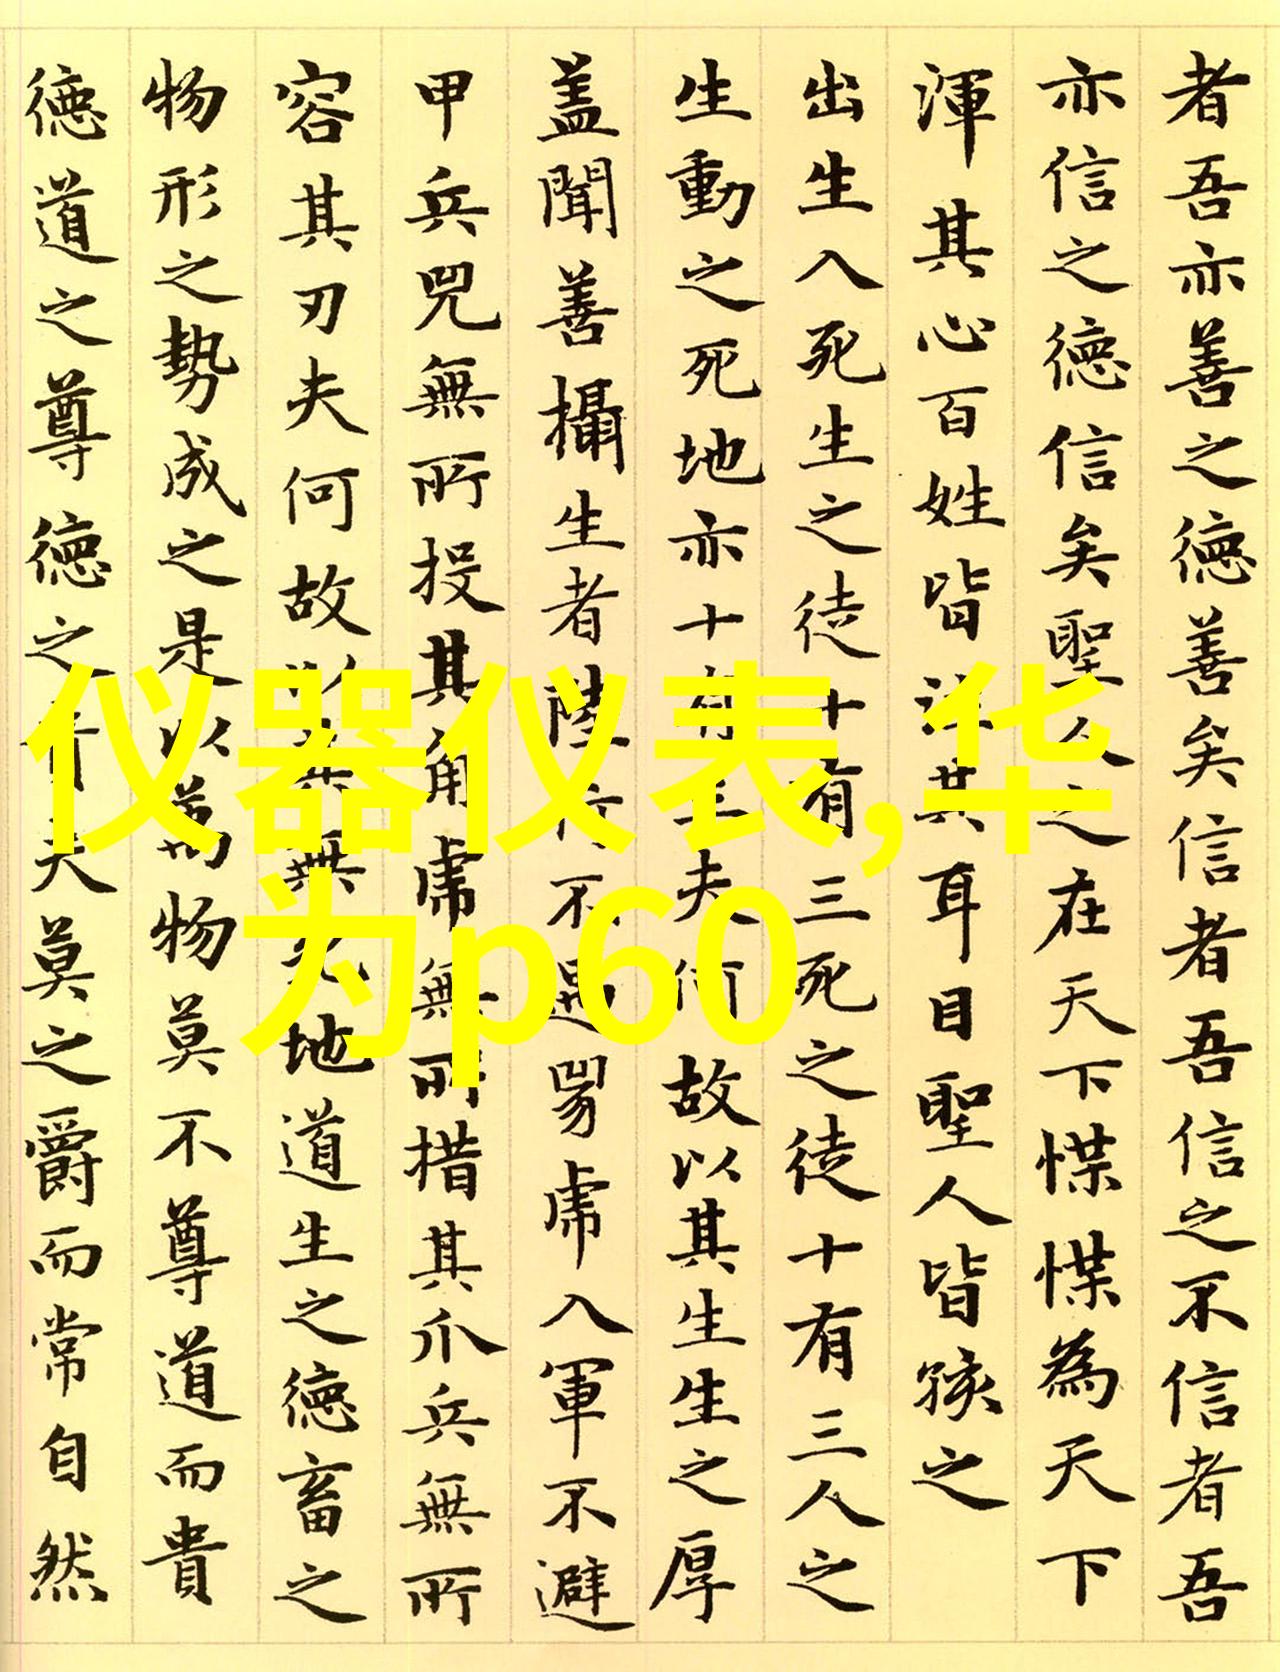 者吾亦善之德善矣信者吾信之不信者吾
亦信之德信矣聖人之在天下惵惵為天下
渾其心百姓皆其耳目聖人皆孩之
出生入死生之徒十有三死之徒十有三人之
生動之死地亦十有三夫何故以其生生之厚
蓋聞善攝生者陸行不遇兕虎入軍不避
甲兵兕無所投其角虎無所措其爪兵無所
容其刃夫何故以其無死地道生之德畜之
物形之勢成之是以萬物莫不尊道而貴
德道之尊德之貴夫莫之爵而常自然
仪器仪表,华
为p60